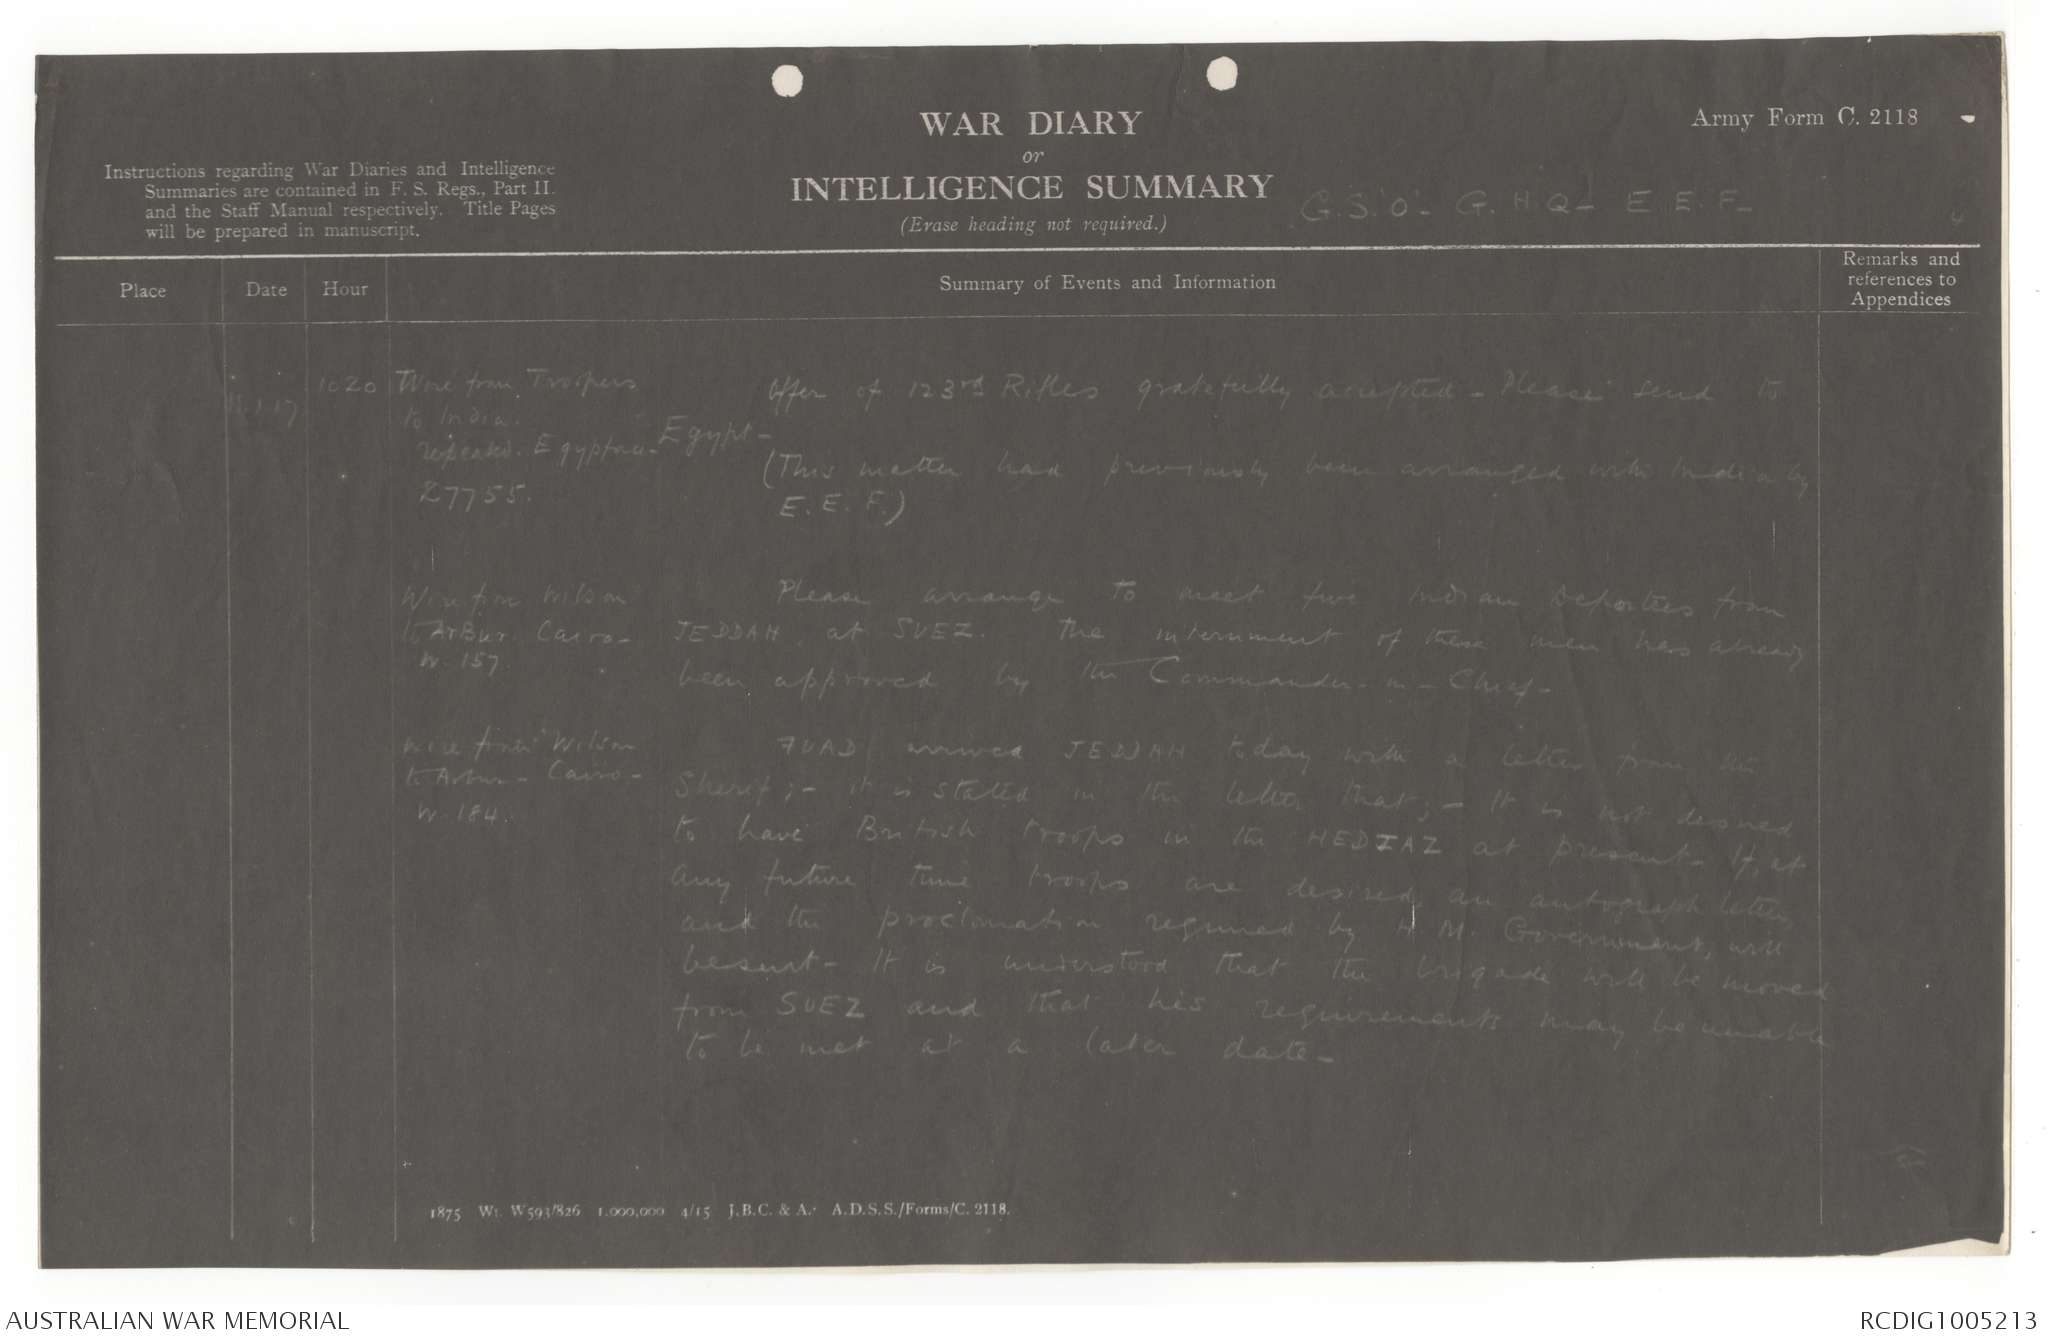 WAR DIARY
or
INTELLIGENCE SUMMARY
(Erase heading not required.)
Army Form C. 2118
Instructions regarding War Diaries and Intelligence
Summaries are contained in F. S. Regs., Part II.
and the Staff Manual respectively. Title Pages
will be prepared in manuscript.
G.S.O. G.H.Q. E.E.F.
Place
Date
Hour
Summary of Events and Information
Remarks and
references to
Appendices
11.1.17
1020
Wire from Troopers
to India.
repeated. Egyptforce.
Z7755.
Offer of 123rd Rifles gratefully accepted - Please send to
Egypt -
(This matter had previously been arranged with India by
E. E. F.)
Wire from Wilson
to ArBur. Cairo -
W. 157.
Please arrange to meet five Indian Deportees from
JEDDAH at SUEZ. The internment of these men has already
been approved by the Commander-in-Chief -
Wire from Wilson
to Arbur - Cairo -
W. 184.
FUAD arrived JEDDAH today with a letter from the
Sherif; - it is stated in the letter that; - It is not desired
to have British troops in the HEDJAZ at present - If, at
any future time troops are desired, an autograph letter,
and the proclamation required by H. M. Government, will
be sent - It is understood that the brigade will be moved
from SUEZ and that his requirements may be unable
to be met at a later date -
1875 Wt. W593/826 1,000,000 4/15 J.B.C. & A. A.D.S.S./Forms/C. 2118.
AUSTRALIAN WAR MEMORIAL
RCDIG1005213